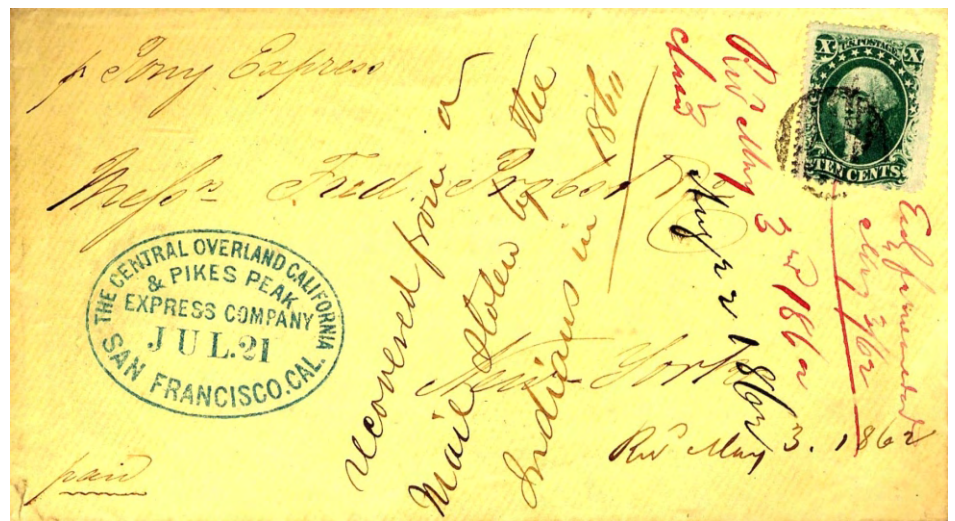 p Pony Express
Messrs Fred. Probst & Co
New York
paid
THE CENTRAL OVERLAND CALIFORNIA
& PIKES PEAK
EXPRESS COMPANY
JUL. 21
SAN FRANCISCO. CAL.
recovered from a
Mail stolen by the
Indians in 1860
Recd May 3rd 1862
Aug 21 1862
May 3/62
Recd May 3. 1862
X U.S. POSTAGE X
TEN CENTS